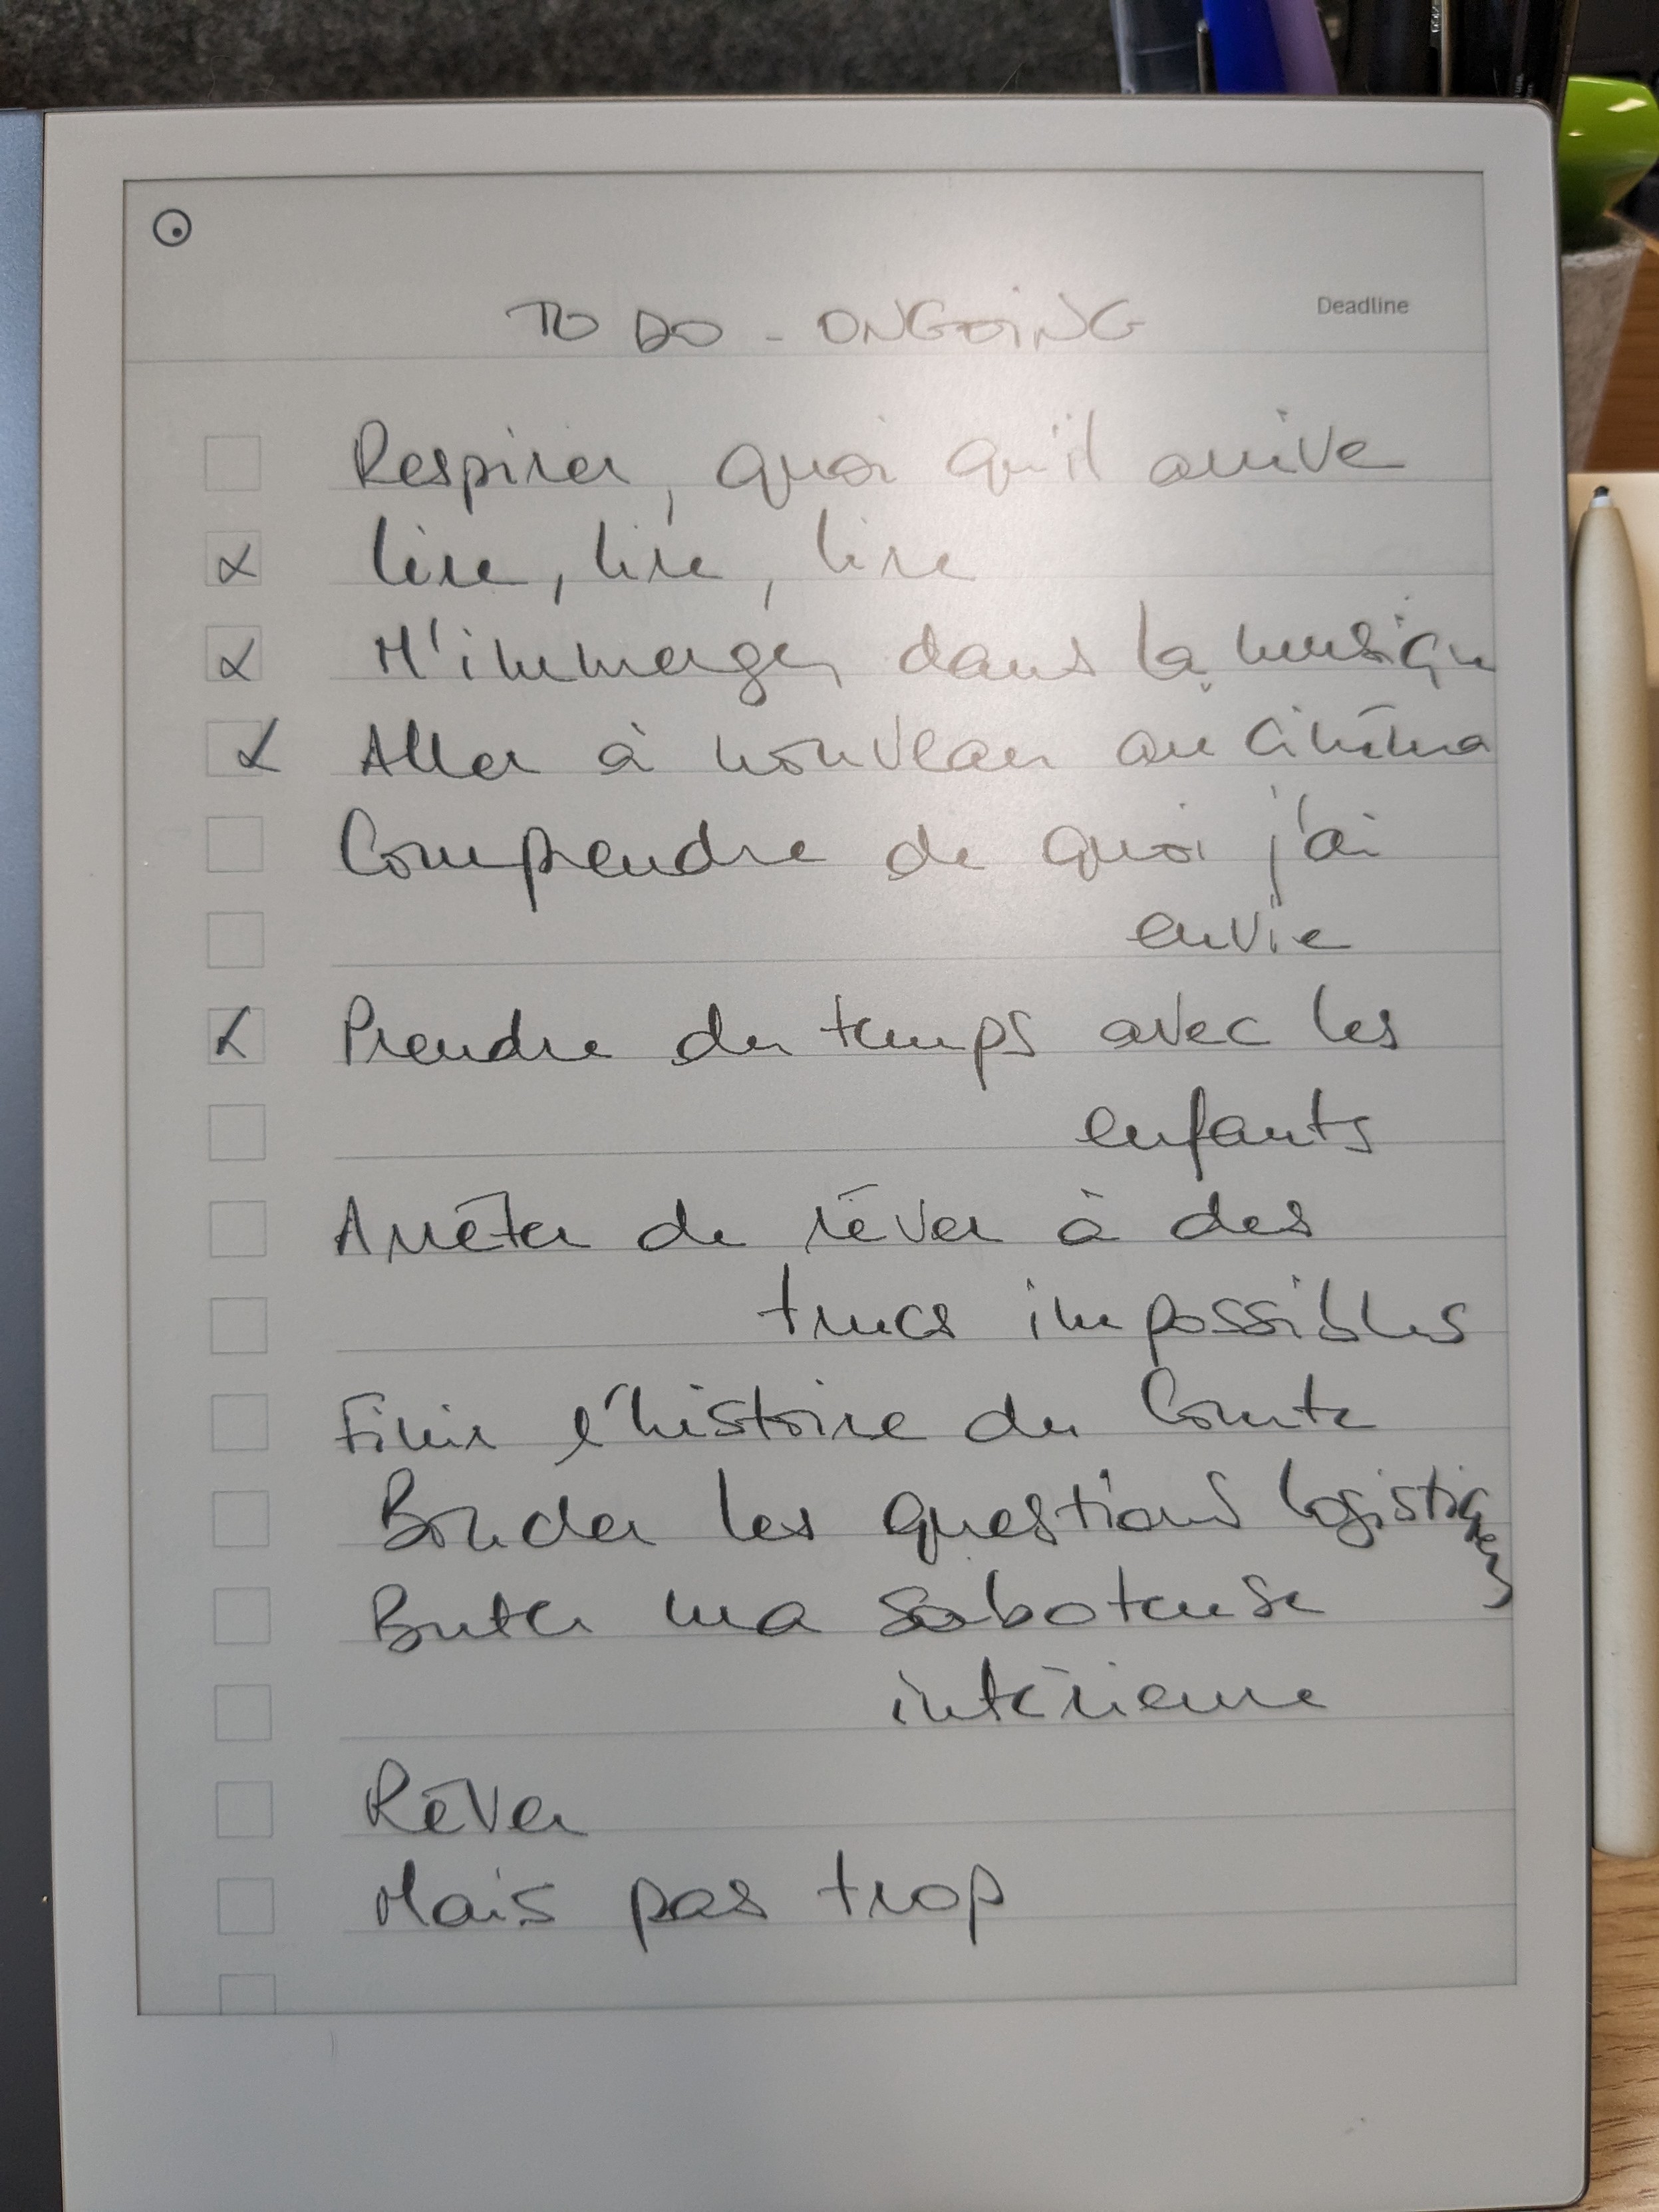 TO DO - ONGOING
Deadline
Respirer, quoi qu'il arrive
lire, lire, lire
M'immerger dans la musique
Aller à nouveau au cinéma
Comprendre de quoi j'ai
envie
Prendre du temps avec les
enfants
Arrêter de rêver à des
trucs impossibles
Finir l'histoire du Comte
Border les questions logistiques
Buter ma saboteuse
intérieure
Rêver
Mais pas trop